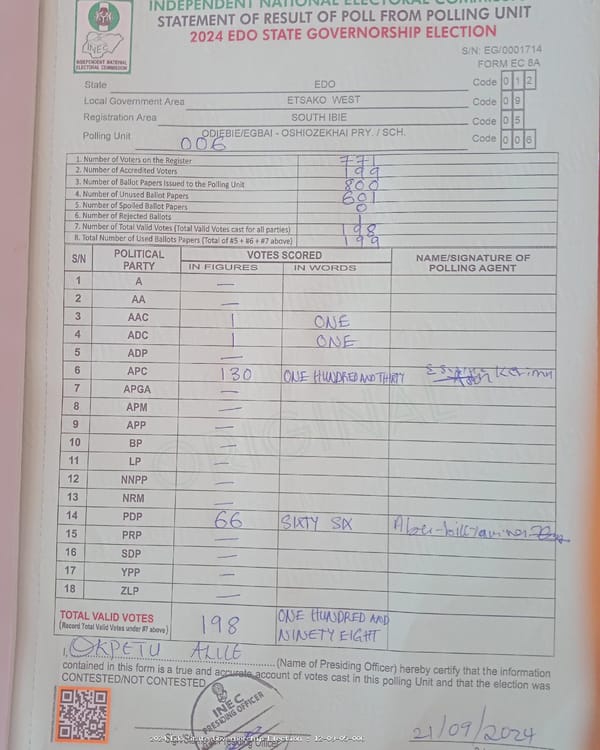 INDEPENDENT NATIONAL ELECTORAL COMMISSION
STATEMENT OF RESULT OF POLL FROM POLLING UNIT
2024 EDO STATE GOVERNORSHIP ELECTION
INEC
INDEPENDENT NATIONAL
ELECTORAL COMMISSION
S/N: EG/0001714
FORM EC 8A
State EDO Code 0 1 2
Local Government Area ETSAKO WEST Code 0 9
Registration Area SOUTH IBIE Code 0 5
Polling Unit ODIEBIE/EGBAI - OSHIOZEKHAI PRY. / SCH. Code 0 0 6
006
1. Number of Voters on the Register 771
2. Number of Accredited Voters 199
3. Number of Ballot Papers Issued to the Polling Unit 800
4. Number of Unused Ballot Papers 601
5. Number of Spoiled Ballot Papers 0
6. Number of Rejected Ballots 1
7. Number of Total Valid Votes (Total Valid Votes cast for all parties) 198
8. Total Number of Used Ballots Papers (Total of #5 + #6 + #7 above) 199
S/N POLITICAL PARTY VOTES SCORED NAME/SIGNATURE OF POLLING AGENT
IN FIGURES IN WORDS
1 A —
2 AA —
3 AAC 1 ONE
4 ADC 1 ONE
5 ADP —
6 APC 130 ONE HUNDRED AND THIRTY
7 APGA —
8 APM —
9 APP —
10 BP —
11 LP —
12 NNPP —
13 NRM —
14 PDP 66 SIXTY SIX
15 PRP —
16 SDP —
17 YPP —
18 ZLP —
ORIGINAL
TOTAL VALID VOTES 198 ONE HUNDRED AND
(Record Total Valid Votes under #7 above) NINETY EIGHT
I, OKPETU ALICE (Name of Presiding Officer) hereby certify that the information
contained in this form is a true and accurate account of votes cast in this polling Unit and that the election was
CONTESTED/NOT CONTESTED
INEC
PRESIDING OFFICER
21/09/2024